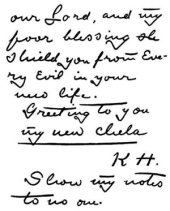 our Lord, and my
poor blessing she
shield you from Eve-
ry Evil in your
new life.
Greeting to you
my new chela
K H.
Show my notes
to no one.